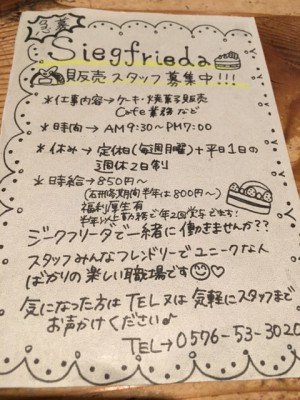 急募
Siegfrieda
販売スタッフ募集中!!!
*仕事内容→ケーキ・焼菓子販売
Cafe業務など
*時間→AM9:30~PM7:00
*休み→定休日(毎週月曜)+平日1日の
週休2日制
*時給→850円~
(石川寿期間半年は800円~)
福利厚生有
半年以上勤務で年2回賞与でます!
ジークフリーダで一緒に働きませんか??
スタッフみんなフレンドリーでユニークな人
ばかりの楽しい職場です
気になった方はTEL又は気軽にスタッフまで
お声かけください♪
TEL→0576-53-3020